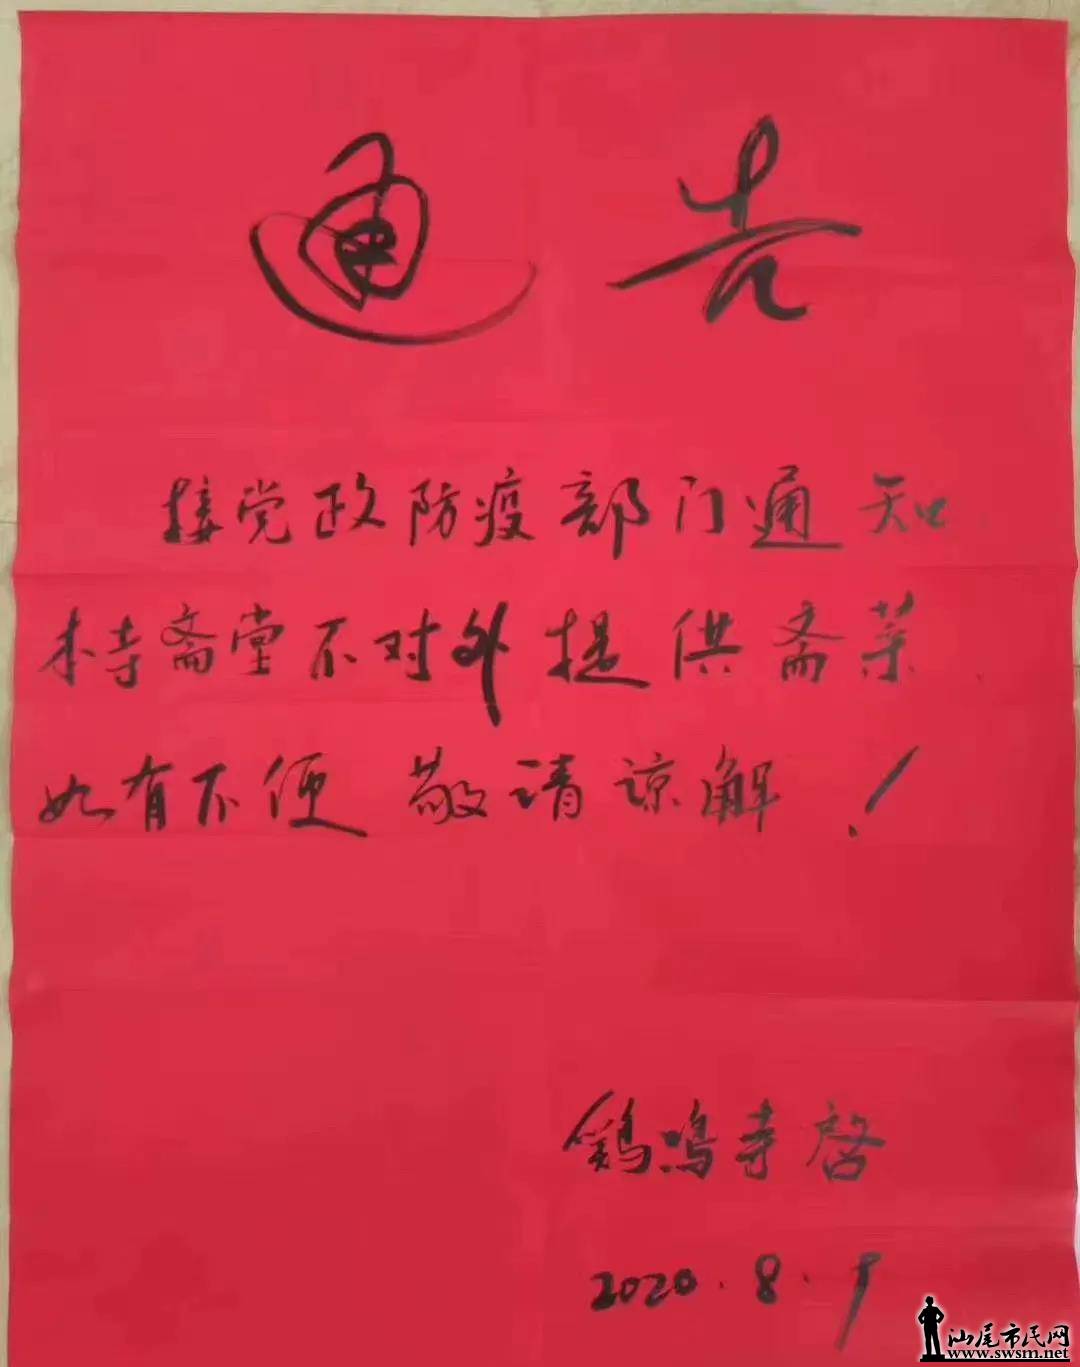 通告
接党政防疫部门通知
本寺斋堂不对外提供斋菜.
如有不便 敬请谅解！
鸡鸣寺启
2020.8.9
汕尾市民网
www.swsm.net